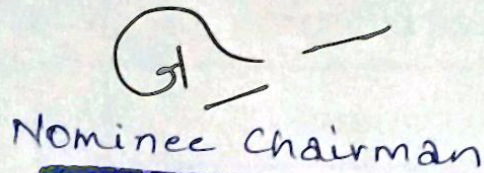 Nominee Chairman